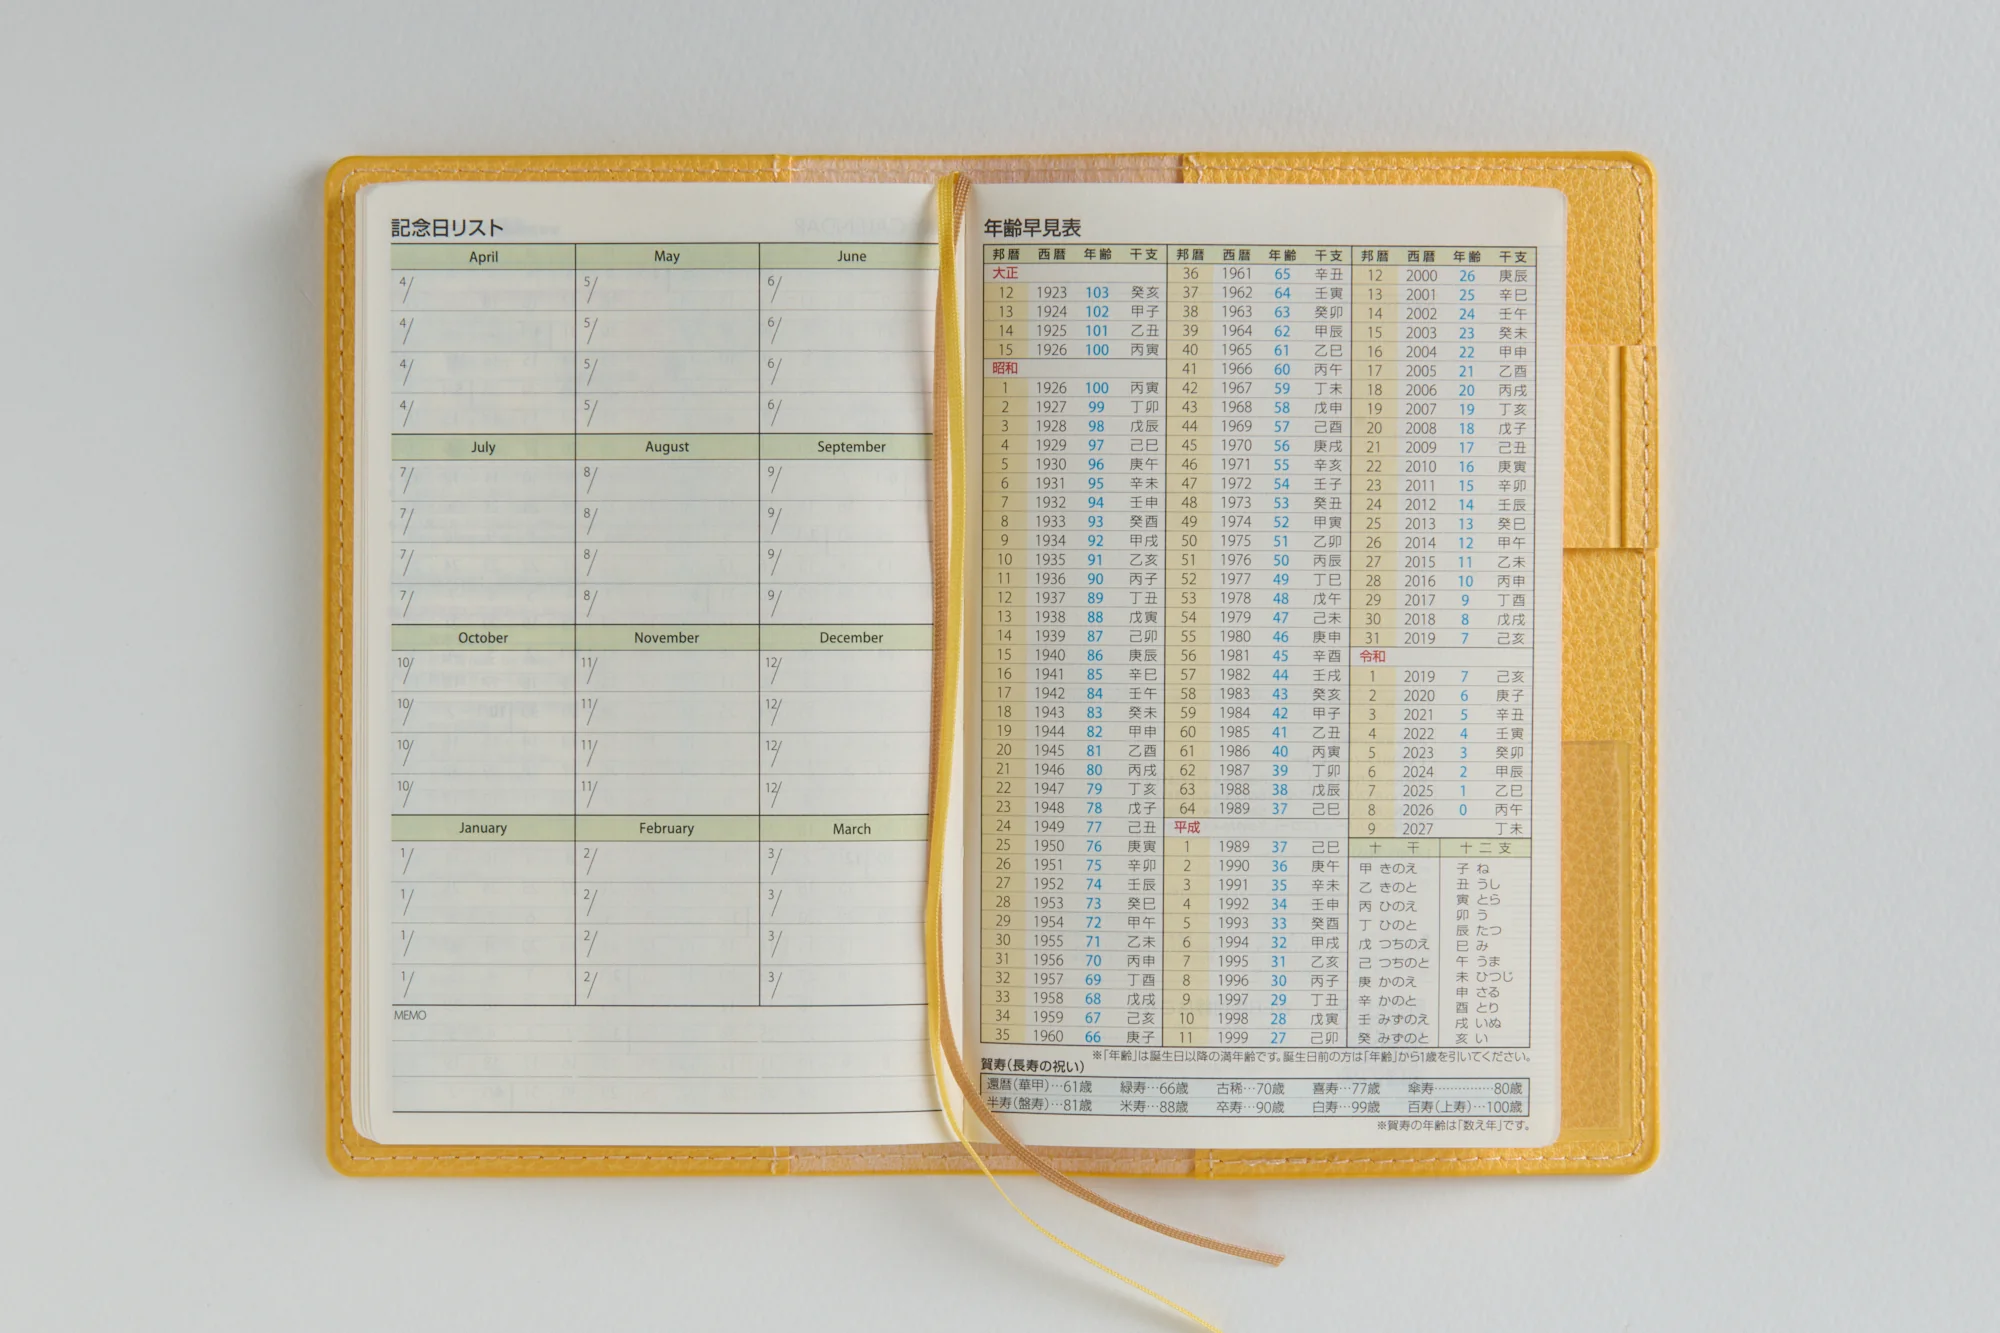 記念日リスト
April May June
4/ 5/ 6/
4/ 5/ 6/
4/ 5/ 6/
4/ 5/ 6/
July August September
7/ 8/ 9/
7/ 8/ 9/
7/ 8/ 9/
7/ 8/ 9/
October November December
10/ 11/ 12/
10/ 11/ 12/
10/ 11/ 12/
10/ 11/ 12/
January February March
1/ 2/ 3/
1/ 2/ 3/
1/ 2/ 3/
1/ 2/ 3/
MEMO
年齢早見表
邦暦 西暦 年齢 干支
大正
12 1923 103 癸亥
13 1924 102 甲子
14 1925 101 乙丑
15 1926 100 丙寅
昭和
1 1926 100 丙寅
2 1927 99 丁卯
3 1928 98 戊辰
4 1929 97 己巳
5 1930 96 庚午
6 1931 95 辛未
7 1932 94 壬申
8 1933 93 癸酉
9 1934 92 甲戌
10 1935 91 乙亥
11 1936 90 丙子
12 1937 89 丁丑
13 1938 88 戊寅
14 1939 87 己卯
15 1940 86 庚辰
16 1941 85 辛巳
17 1942 84 壬午
18 1943 83 癸未
19 1944 82 甲申
20 1945 81 乙酉
21 1946 80 丙戌
22 1947 79 丁亥
23 1948 78 戊子
24 1949 77 己丑
25 1950 76 庚寅
26 1951 75 辛卯
27 1952 74 壬辰
28 1953 73 癸巳
29 1954 72 甲午
30 1955 71 乙未
31 1956 70 丙申
32 1957 69 丁酉
33 1958 68 戊戌
34 1959 67 己亥
35 1960 66 庚子
邦暦 西暦 年齢 干支
36 1961 65 辛丑
37 1962 64 壬寅
38 1963 63 癸卯
39 1964 62 甲辰
40 1965 61 乙巳
41 1966 60 丙午
42 1967 59 丁未
43 1968 58 戊申
44 1969 57 己酉
45 1970 56 庚戌
46 1971 55 辛亥
47 1972 54 壬子
48 1973 53 癸丑
49 1974 52 甲寅
50 1975 51 乙卯
51 1976 50 丙辰
52 1977 49 丁巳
53 1978 48 戊午
54 1979 47 己未
55 1980 46 庚申
56 1981 45 辛酉
57 1982 44 壬戌
58 1983 43 癸亥
59 1984 42 甲子
60 1985 41 乙丑
61 1986 40 丙寅
62 1987 39 丁卯
63 1988 38 戊辰
64 1989 37 己巳
平成
1 1989 37 己巳
2 1990 36 庚午
3 1991 35 辛未
4 1992 34 壬申
5 1993 33 癸酉
6 1994 32 甲戌
7 1995 31 乙亥
8 1996 30 丙子
9 1997 29 丁丑
10 1998 28 戊寅
11 1999 27 己卯
邦暦 西暦 年齢 干支
12 2000 26 庚辰
13 2001 25 辛巳
14 2002 24 壬午
15 2003 23 癸未
16 2004 22 甲申
17 2005 21 乙酉
18 2006 20 丙戌
19 2007 19 丁亥
20 2008 18 戊子
21 2009 17 己丑
22 2010 16 庚寅
23 2011 15 辛卯
24 2012 14 壬辰
25 2013 13 癸巳
26 2014 12 甲午
27 2015 11 乙未
28 2016 10 丙申
29 2017 9 丁酉
30 2018 8 戊戌
31 2019 7 己亥
令和
1 2019 7 己亥
2 2020 6 庚子
3 2021 5 辛丑
4 2022 4 壬寅
5 2023 3 癸卯
6 2024 2 甲辰
7 2025 1 乙巳
8 2026 0 丙午
9 2027 丁未
十干
甲 きのえ
乙 きのと
丙 ひのえ
丁 ひのと
戊 つちのえ
己 つちのと
庚 かのえ
辛 かのと
壬 みずのえ
癸 みずのと
十二支
子 ね
丑 うし
寅 とら
卯 う
辰 たつ
巳 み
午 うま
未 ひつじ
申 さる
酉 とり
戌 いぬ
亥 い
※「年齢」は誕生日以降の満年齢です。誕生日前の方は「年齢」から1歳を引いてください。
賀寿(長寿の祝い)
還暦(華甲)…61歳 緑寿…66歳 古稀…70歳 喜寿…77歳 傘寿…………80歳
半寿(盤寿)…81歳 米寿…88歳 卒寿…90歳 白寿…99歳 百寿(上寿)…100歳
※賀寿の年齢は「数え年」です。